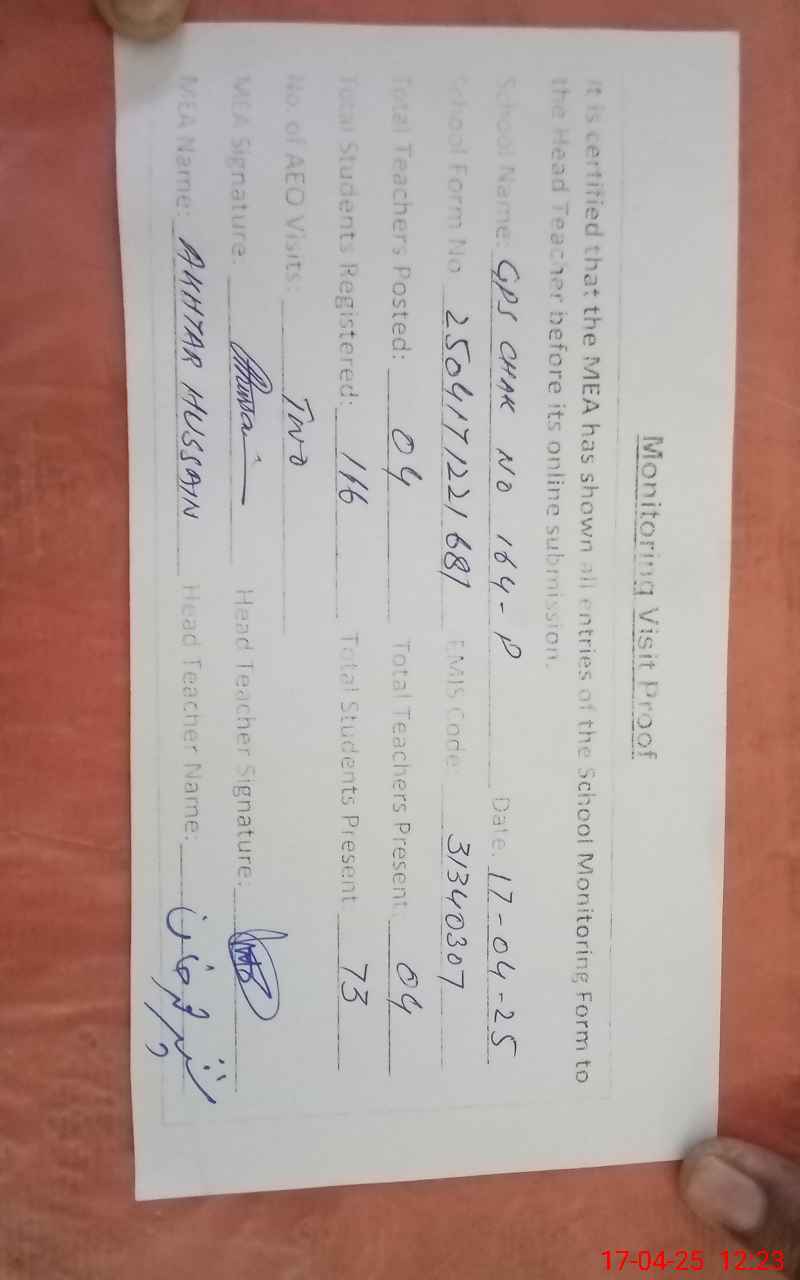 Monitoring Visit Proof
It is certified that the MEA has shown all entries of the School Monitoring Form to
the Head Teacher before its online submission.
School Name: GPS CHAK NO 164-P Date: 17-04-25
School Form No 250417121681 EMIS Code: 31340307
Total Teachers Posted: 04 Total Teachers Present 04
Total Students Registered: 116 Total Students Present 73
No. of AEO Visits: Two
MEA Signature: Head Teacher Signature:
MEA Name: AKHTAR HUSSAIN Head Teacher Name:
17-04-25 12:23